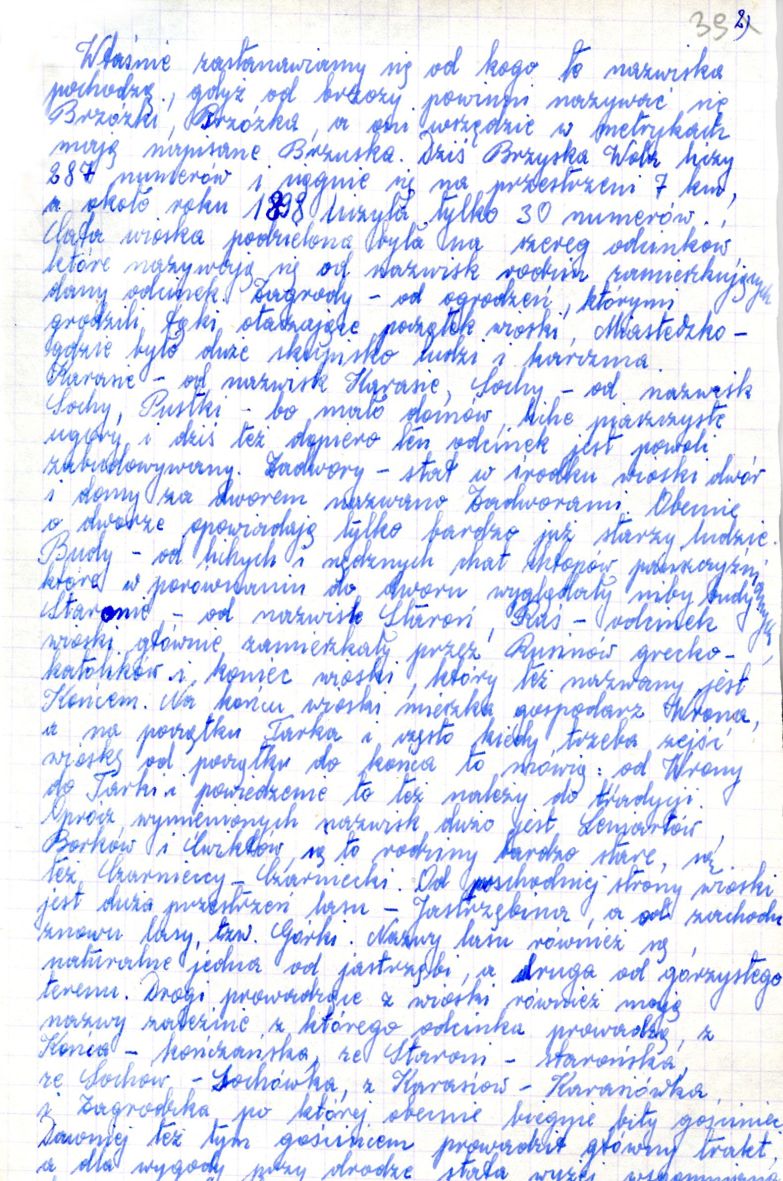 39 2)
Właśnie zastanawiamy się od kogo te nazwiska
pochodzą, gdyż od brzozy powinni nazywać się
Brzózki, Brzózka, a oni wszędzie w metrykach
mają napisane Brzuska. Dziś Brzyska Wola liczy
287 numerów i ciągnie się na przestrzeni 7 km,
a około roku 1898 liczyła tylko 30 numerów.
Cała wioska podzielona była na szereg odcinków
które nazywają się od nazwisk rodzin zamieszkujących
dany odcinek. Zagrody – od ogrodzeń, którymi
grodzili łąki, otaczające początek wioski, Miasteczko –
gdzie było duże skupisko ludzi i karczma.
Karasie – od nazwisk Karasie, Sochy – od nazwisk
Sochy, Pustki – bo mało domów, liche piaszczyste
ugory, i dziś też dopiero ten odcinek jest powoli
zabudowywany. Zadwory – stał w środku wioski dwór
i domy za dworem nazwano Zadworami. Obecnie
o dworze opowiadają tylko bardzo już starzy ludzie.
Budy – od lichych i nędznych chat chłopów pańszczyźnianych,
które w porównaniu do dworu wyglądały niby budy,
Staronie – od nazwisk Staroń, Ruś – odcinek
wioski głównie zamieszkały przez Rusinów grecko-
katolików i koniec wioski, który też nazwany jest
Końcem. Na końcu wioski mieszka gospodarz Wrona,
a na początku Tarka i często kiedy trzeba zejść
wioskę od początku do końca to mówią: od Wrony
do Tarki i powiedzenie to też należy do tradycji.
Oprócz wymienionych nazwisk dużo jest Lenartów,
Borków i Ćwikłów, są to rodziny bardzo stare, są
też Czarnieccy – Czarniecki. Od wschodniej strony wioski
jest duża przestrzeń lasu – Jastrzębina, a od zachodu
znowu lasy, tzw. Górki. Nazwy lasu również są
naturalne jedna od jastrzębi, a druga od górzystego
terenu. Drogi prowadzące z wioski również mają
nazwy zależnie z którego odcinka prowadzą, z
Końca – kończańska, ze Staroni – starońska,
ze Sochów – Sochówka, z Karasiów – Karasiówka,
i Zagrodzka po której obecnie biegnie bity gościniec.
Dawniej też tym gościńcem prowadził główny trakt,
a dla wygody przy drodze stała wyżej wspomniana